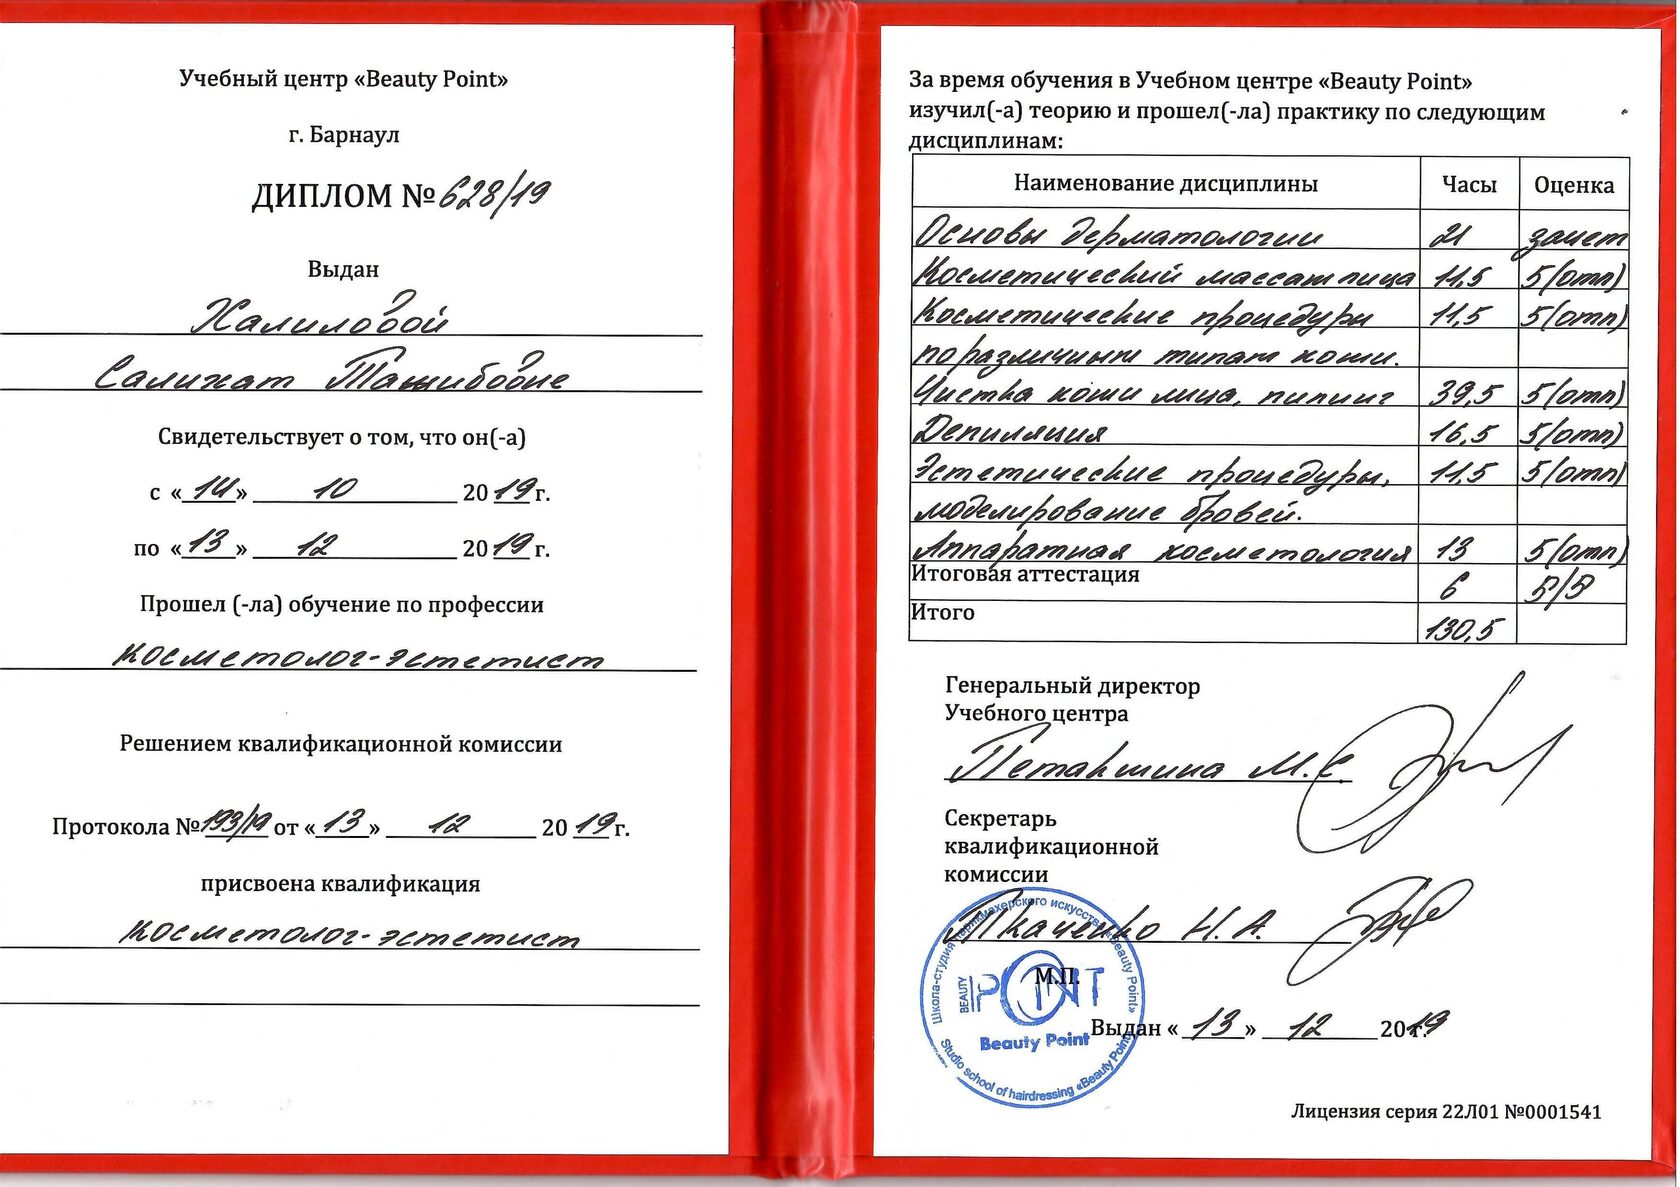 Учебный центр «Beauty Point»
г. Барнаул
ДИПЛОМ № 628/19
Выдан
Халиловой
Салихат Ташибовне
Свидетельствует о том, что он(-а)
с «14» 10 2019 г.
по «13» 12 2019 г.
Прошел (-ла) обучение по профессии
косметолог-эстетист
Решением квалификационной комиссии
Протокола № 193/19 от «13» 12 2019 г.
присвоена квалификация
косметолог-эстетист
За время обучения в Учебном центре «Beauty Point»
изучил(-а) теорию и прошел(-ла) практику по следующим
дисциплинам:
Наименование дисциплины Часы Оценка
Основы дерматологии 21 зачет
Косметический массаж лица 11,5 5(отл)
Косметические процедуры 11,5 5(отл)
по различным типам кожи.
Чистка кожи лица, пилинг 39,5 5(отл)
Депиляция 16,5 5(отл)
Эстетические процедуры, 11,5 5(отл)
моделирование бровей.
Аппаратная косметология 13 5(отл)
Итоговая аттестация 6 5/5
Итого 130,5
Генеральный директор
Учебного центра
Петакшина М.С.
Секретарь
квалификационной
комиссии
Ткаченко Н.А.
М.П.
Школа-студия парикмахерского искусства «Beauty Point»
BEAUTY POINT
Beauty Point
Studio school of hairdressing «Beauty Point»
Выдан «13» 12 2019 г.
Лицензия серия 22Л01 №0001541